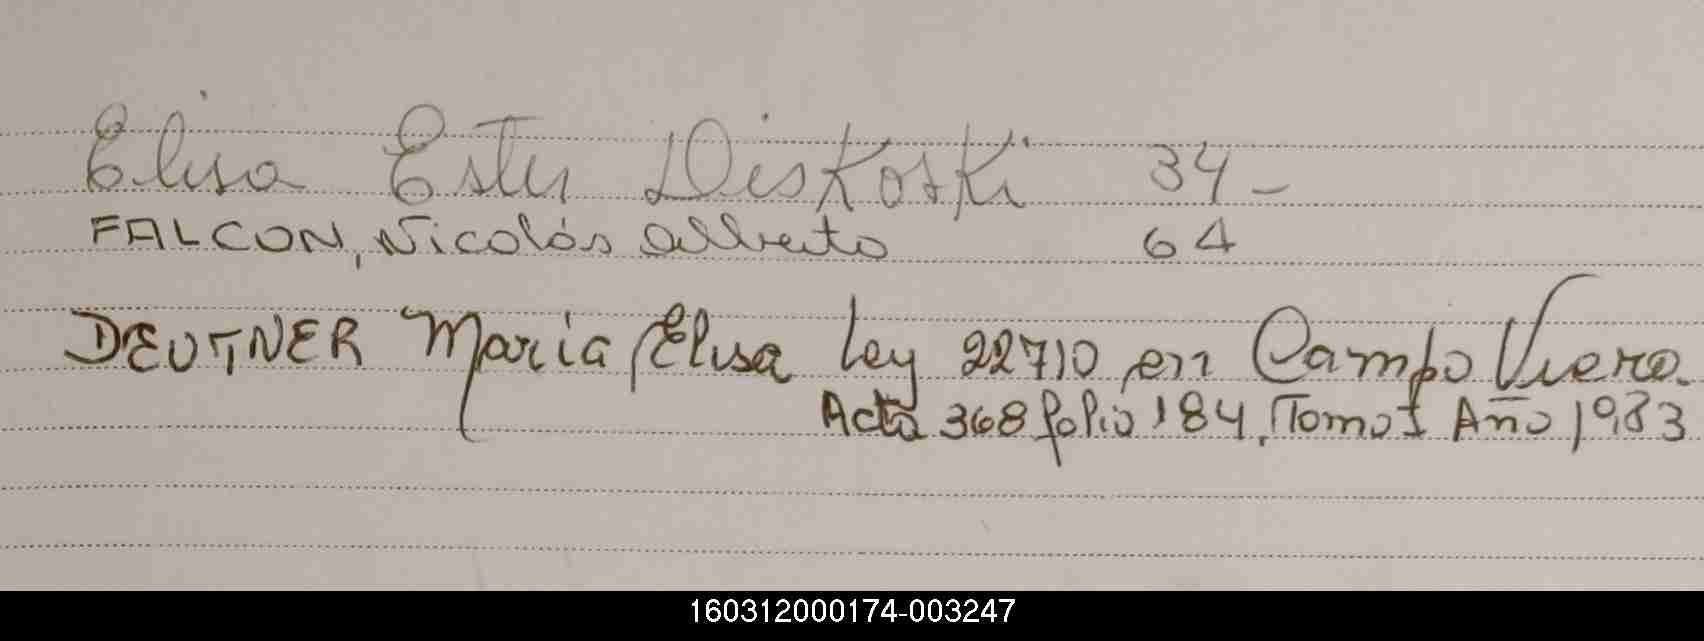 Elisa Ester Diskoski 34-
FALCON, Nicolás Alberto 64
DEUTNER Maria Elisa Ley 22710 en Campo Viera.
Acta 368 folio 184, Tomo I Año 1983
160312000174-003247